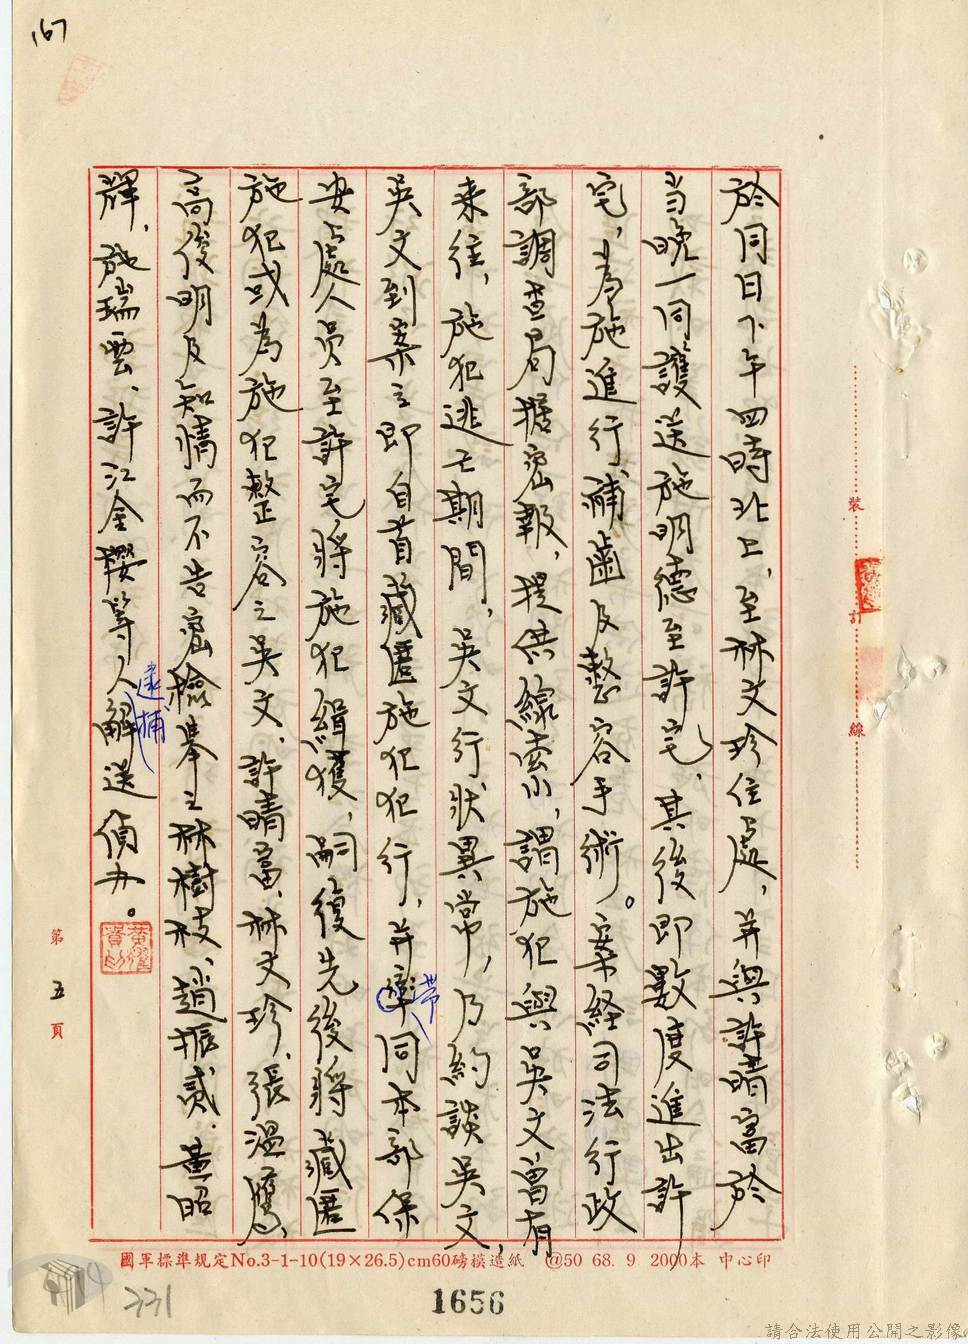 167
於同日下午四時北上，至林文珍住處，并與許晴富於
当晚一同護送施明德至許宅，其後即數度進出許
宅，為施進行補齒及整容手術。案経司法行政
部調查局据密報，提供線索，謂施犯與吳文曾有
来往，施犯逃亡期間，吳文行狀異常，乃約談吳文，
吳文到案之即自首藏匿施犯犯行，并率帶同本部保
安處人員至許宅將施犯緝獲，嗣復先後將藏匿
施犯或為施犯整容之吳文、許晴富、林文珍、張溫鷹、
高俊明及知情而不告密檢舉之林樹枝、趙振貳、黃昭
輝、施瑞雲、許江金櫻等人逮捕解送偵办。
裝
訂
線
第五頁
國軍標準規定No.3-1-10(19×26.5)cm60磅模造紙 @50 68. 9 2000本 中心印
331
1656
請合法使用公開之影像